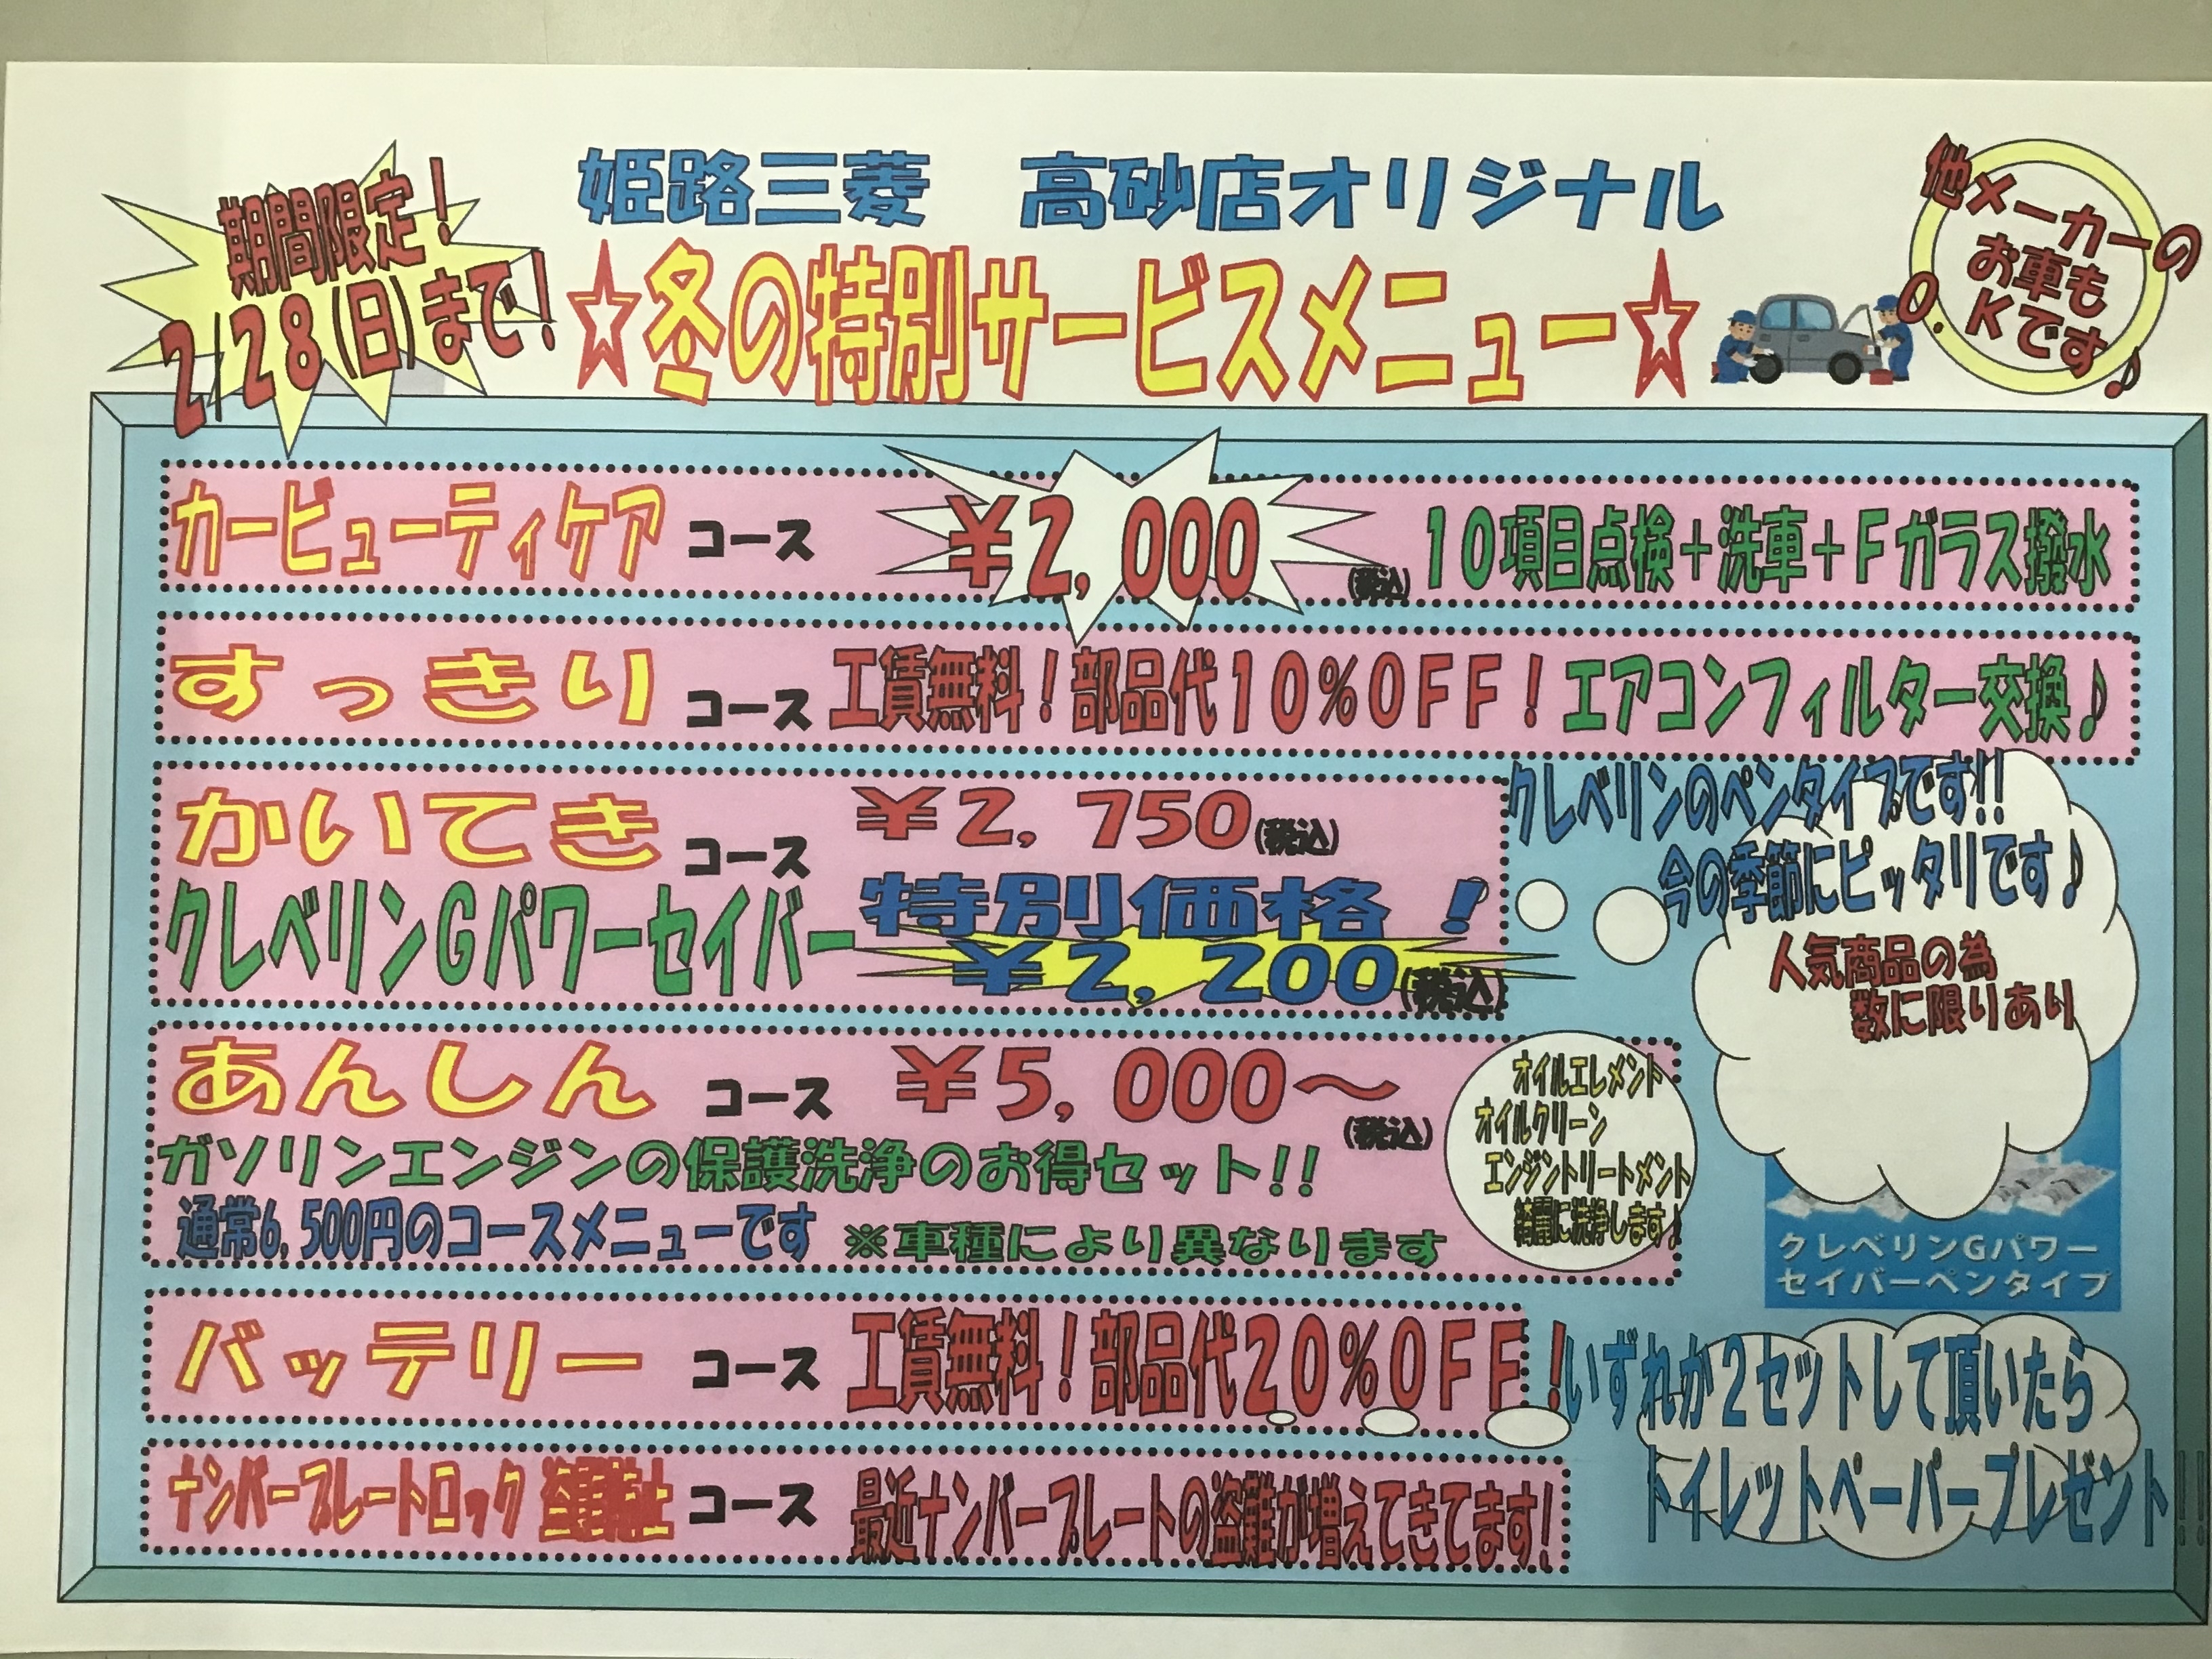 期間限定！
2/28(日)まで！
姫路三菱　高砂店オリジナル
☆冬の特別サービスメニュー☆
他メーカーの
お車も
O.Kです♪
カービューティケア コース ¥2,000 (税込) 10項目点検＋洗車＋Fガラス撥水
すっきり コース 工賃無料！部品代10%OFF！エアコンフィルター交換♪
かいてき コース ¥2,750(税込)
クレベリンGパワーセイバー 特別価格！
¥2,200(税込)
クレベリンのペンタイプです!!
今の季節にピッタリです♪
人気商品の為
数に限りあり
あんしん コース ¥5,000～
(税込)
ガソリンエンジンの保護洗浄のお得セット!!
通常6,500円のコースメニューです ※車種により異なります
オイルエレメント
オイルクリーン
エンジントリートメント
綺麗に洗浄します♪
クレベリンGパワー
セイバーペンタイプ
バッテリー コース 工賃無料！部品代20%OFF！
いずれか2セットして頂いたら
トイレットペーパープレゼント!!
ナンバープレートロック 盗難防止 コース 最近ナンバープレートの盗難が増えてきてます!